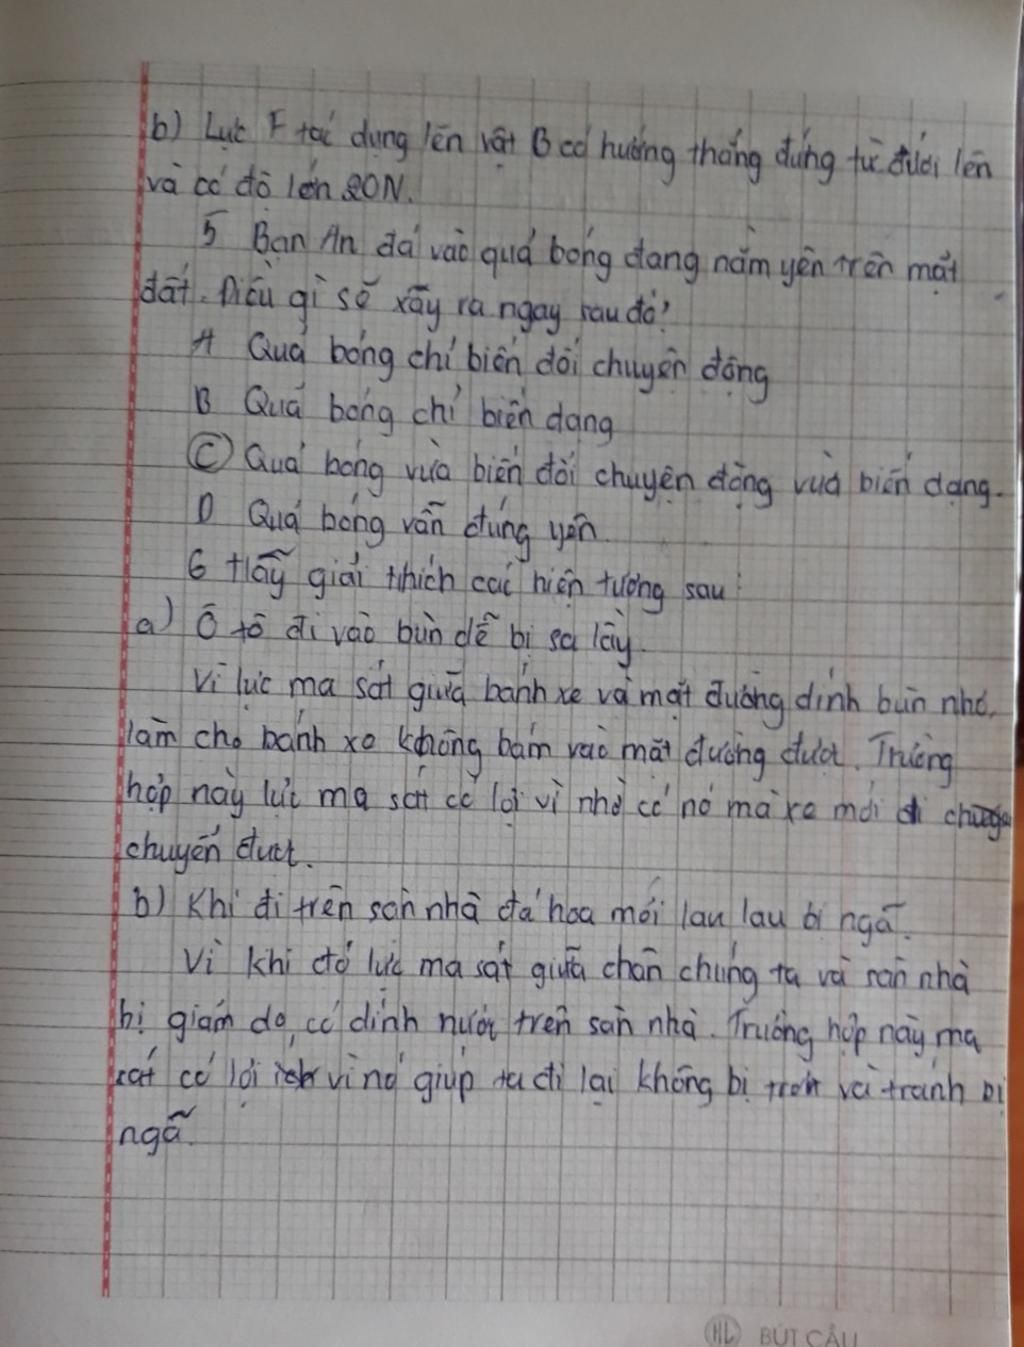 b) Lực F tác dụng lên vật B có hướng thẳng đứng từ dưới lên
và có độ lớn 20N.
5 Bạn An đá vào quả bóng đang nằm yên trên mặt
đất. Điều gì sẽ xảy ra ngay sau đó?
A Quả bóng chỉ biến đổi chuyển động
B Quả bóng chỉ biến dạng
C Quả bóng vừa biến đổi chuyển động vừa biến dạng.
D Quả bóng vẫn đứng yên
6 Hãy giải thích các hiện tượng sau:
a) Ô tô đi vào bùn dễ bị sa lầy.
Vì lực ma sát giữa bánh xe và mặt đường dính bùn nhỏ,
làm cho bánh xe không bám vào mặt đường được. Trường
hợp này lực ma sát có lợi vì nhờ có nó mà xe mới di
chuyển được.
b) Khi đi trên sàn nhà đá hoa mới lau lau bị ngã.
Vì khi đó lực ma sát giữa chân chúng ta và sàn nhà
bị giảm do có dính nước trên sàn nhà. Trường hợp này ma
sát có lợi vì nó giúp ta đi lại không bị trơn và tránh bị
ngã.
HL BÚT CẦU